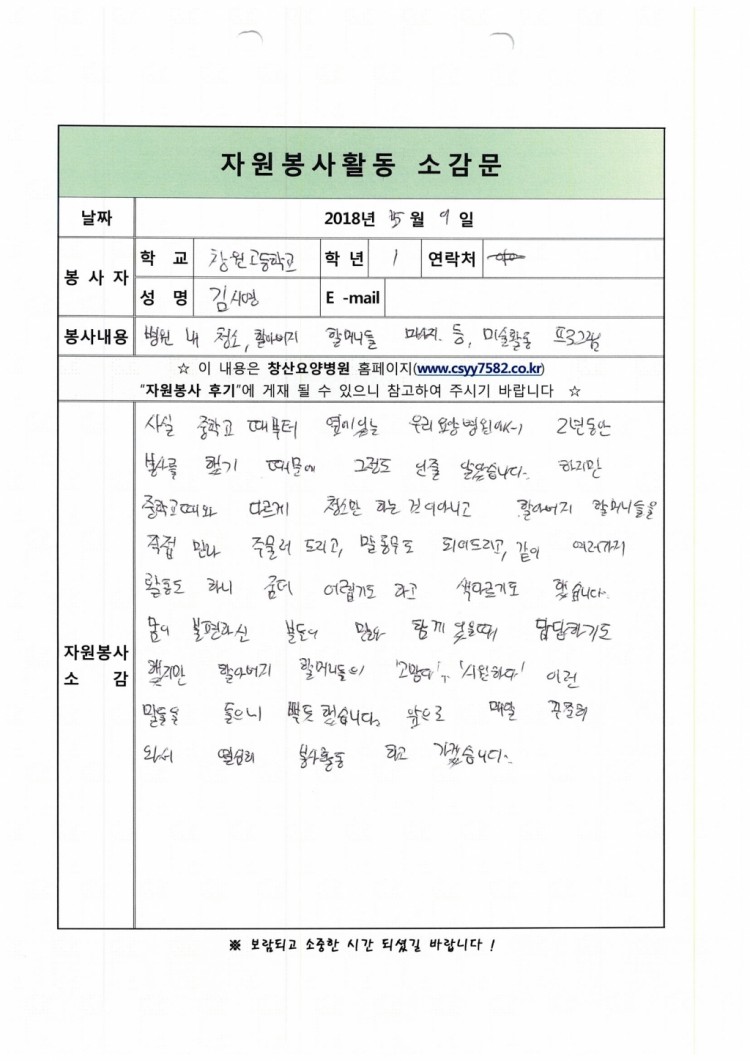 자원봉사활동 소감문
날짜 2018년 5 월 9 일
봉 사 자
학 교 창원고등학교 학 년 1 연락처
성 명 김시영 E -mail
봉사내용 병원 내 청소, 할아버지 할머니들 마사지 등, 미술활동 프로그램
☆ 이 내용은 창산요양병원 홈페이지(www.csyy7582.co.kr)
"자원봉사 후기"에 게재 될 수 있으니 참고하여 주시기 바랍니다 ☆
자원봉사
소 감
사실 중학교 때부터 옆에있는 우리요양병원에서 2년동안
봉사를 했기 때문에 그정도 인줄 알았습니다. 하지만
중학교때와 다르게 청소만 하는 것이아니고 할아버지 할머니들을
직접 만나 주물러 드리고, 말동무도 되어드리고, 같이 여러가지
활동도 하니 좀더 어렵기도 하고 색다르기도 했습니다.
몸이 불편하신 분들이 함께 있을때 답답하기도
했지만 할아버지 할머니들의 '고맙다', '시원하다' 이런
말들을 들으니 뿌듯했습니다. 앞으로 매달 꾸준히
와서 열심히 봉사활동 하고 가겠습니다.
※ 보람되고 소중한 시간 되셨길 바랍니다 !